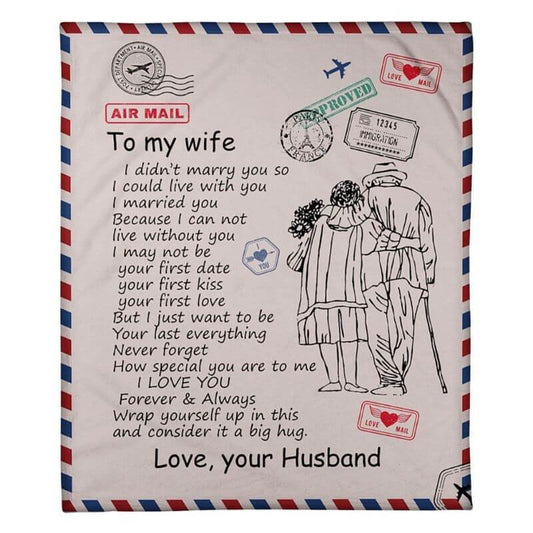 POST DEPARTMENT • AIR MAIL • SPECIAL
AIR MAIL
LOVE MAIL
APPROVED
PARIS
FRANCE
12345
IMMIGRATION
To my wife
I didn't marry you so
I could live with you
I married you
Because I can not
live without you
I may not be
your first date
your first kiss
your first love
But I just want to be
Your last everything
Never forget
How special you are to me
I LOVE YOU
Forever & Always
Wrap yourself up in this
and consider it a big hug.
Love, your Husband
YOU
LOVE MAIL